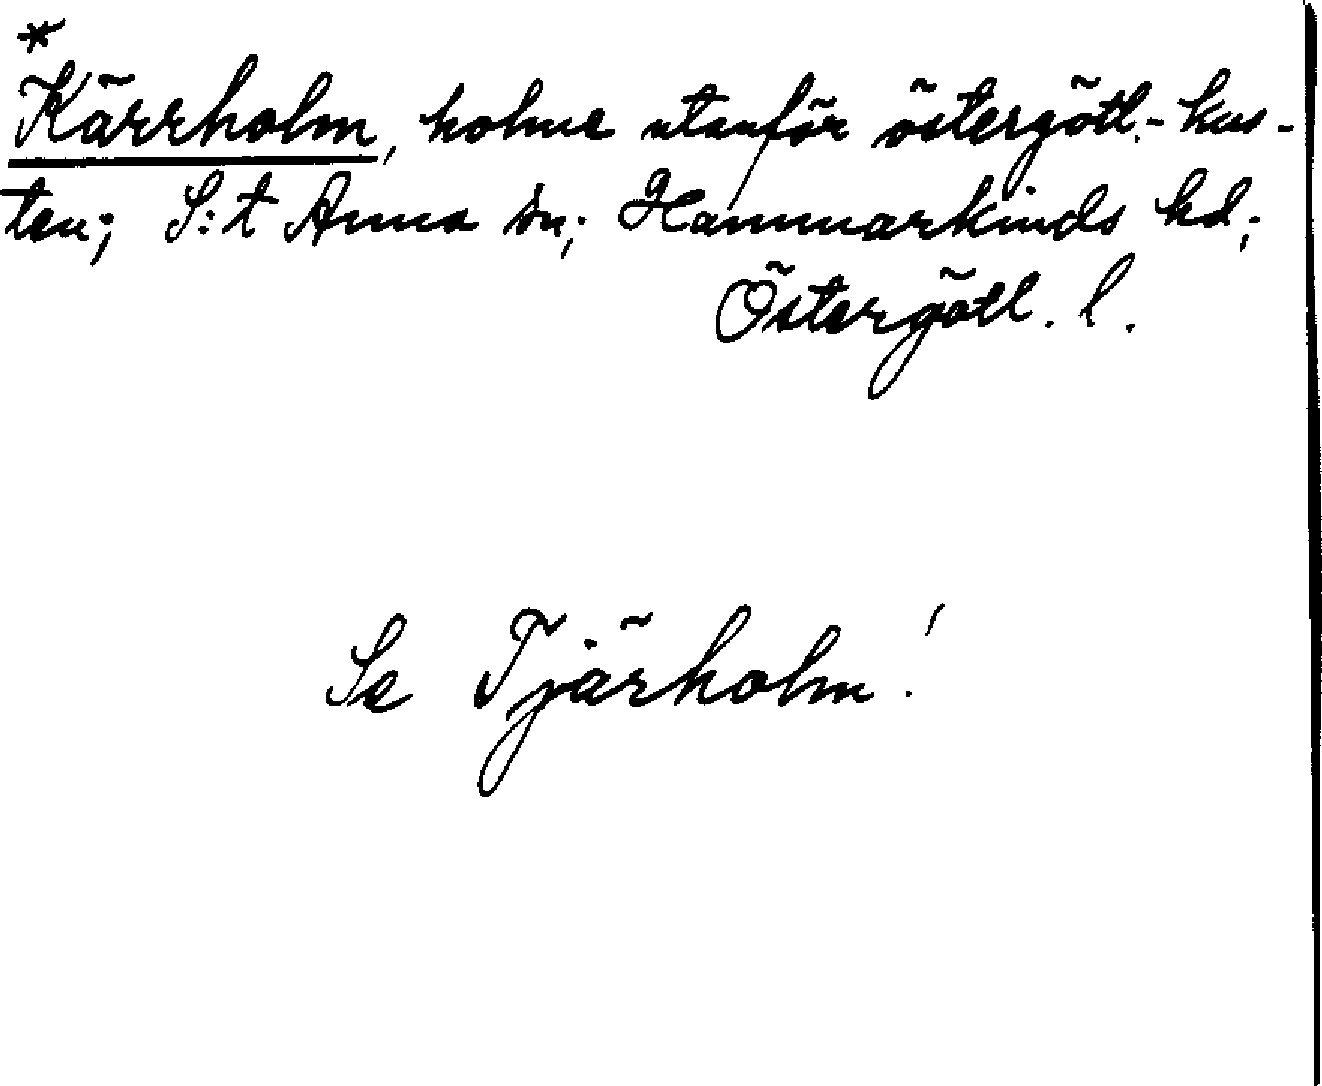 *
Kärrholm, holme utanför östergötl.-kus-
ten; S:t Anna sn; Hammarkinds hd;
Östergötl. l.
Se Tjärholm!